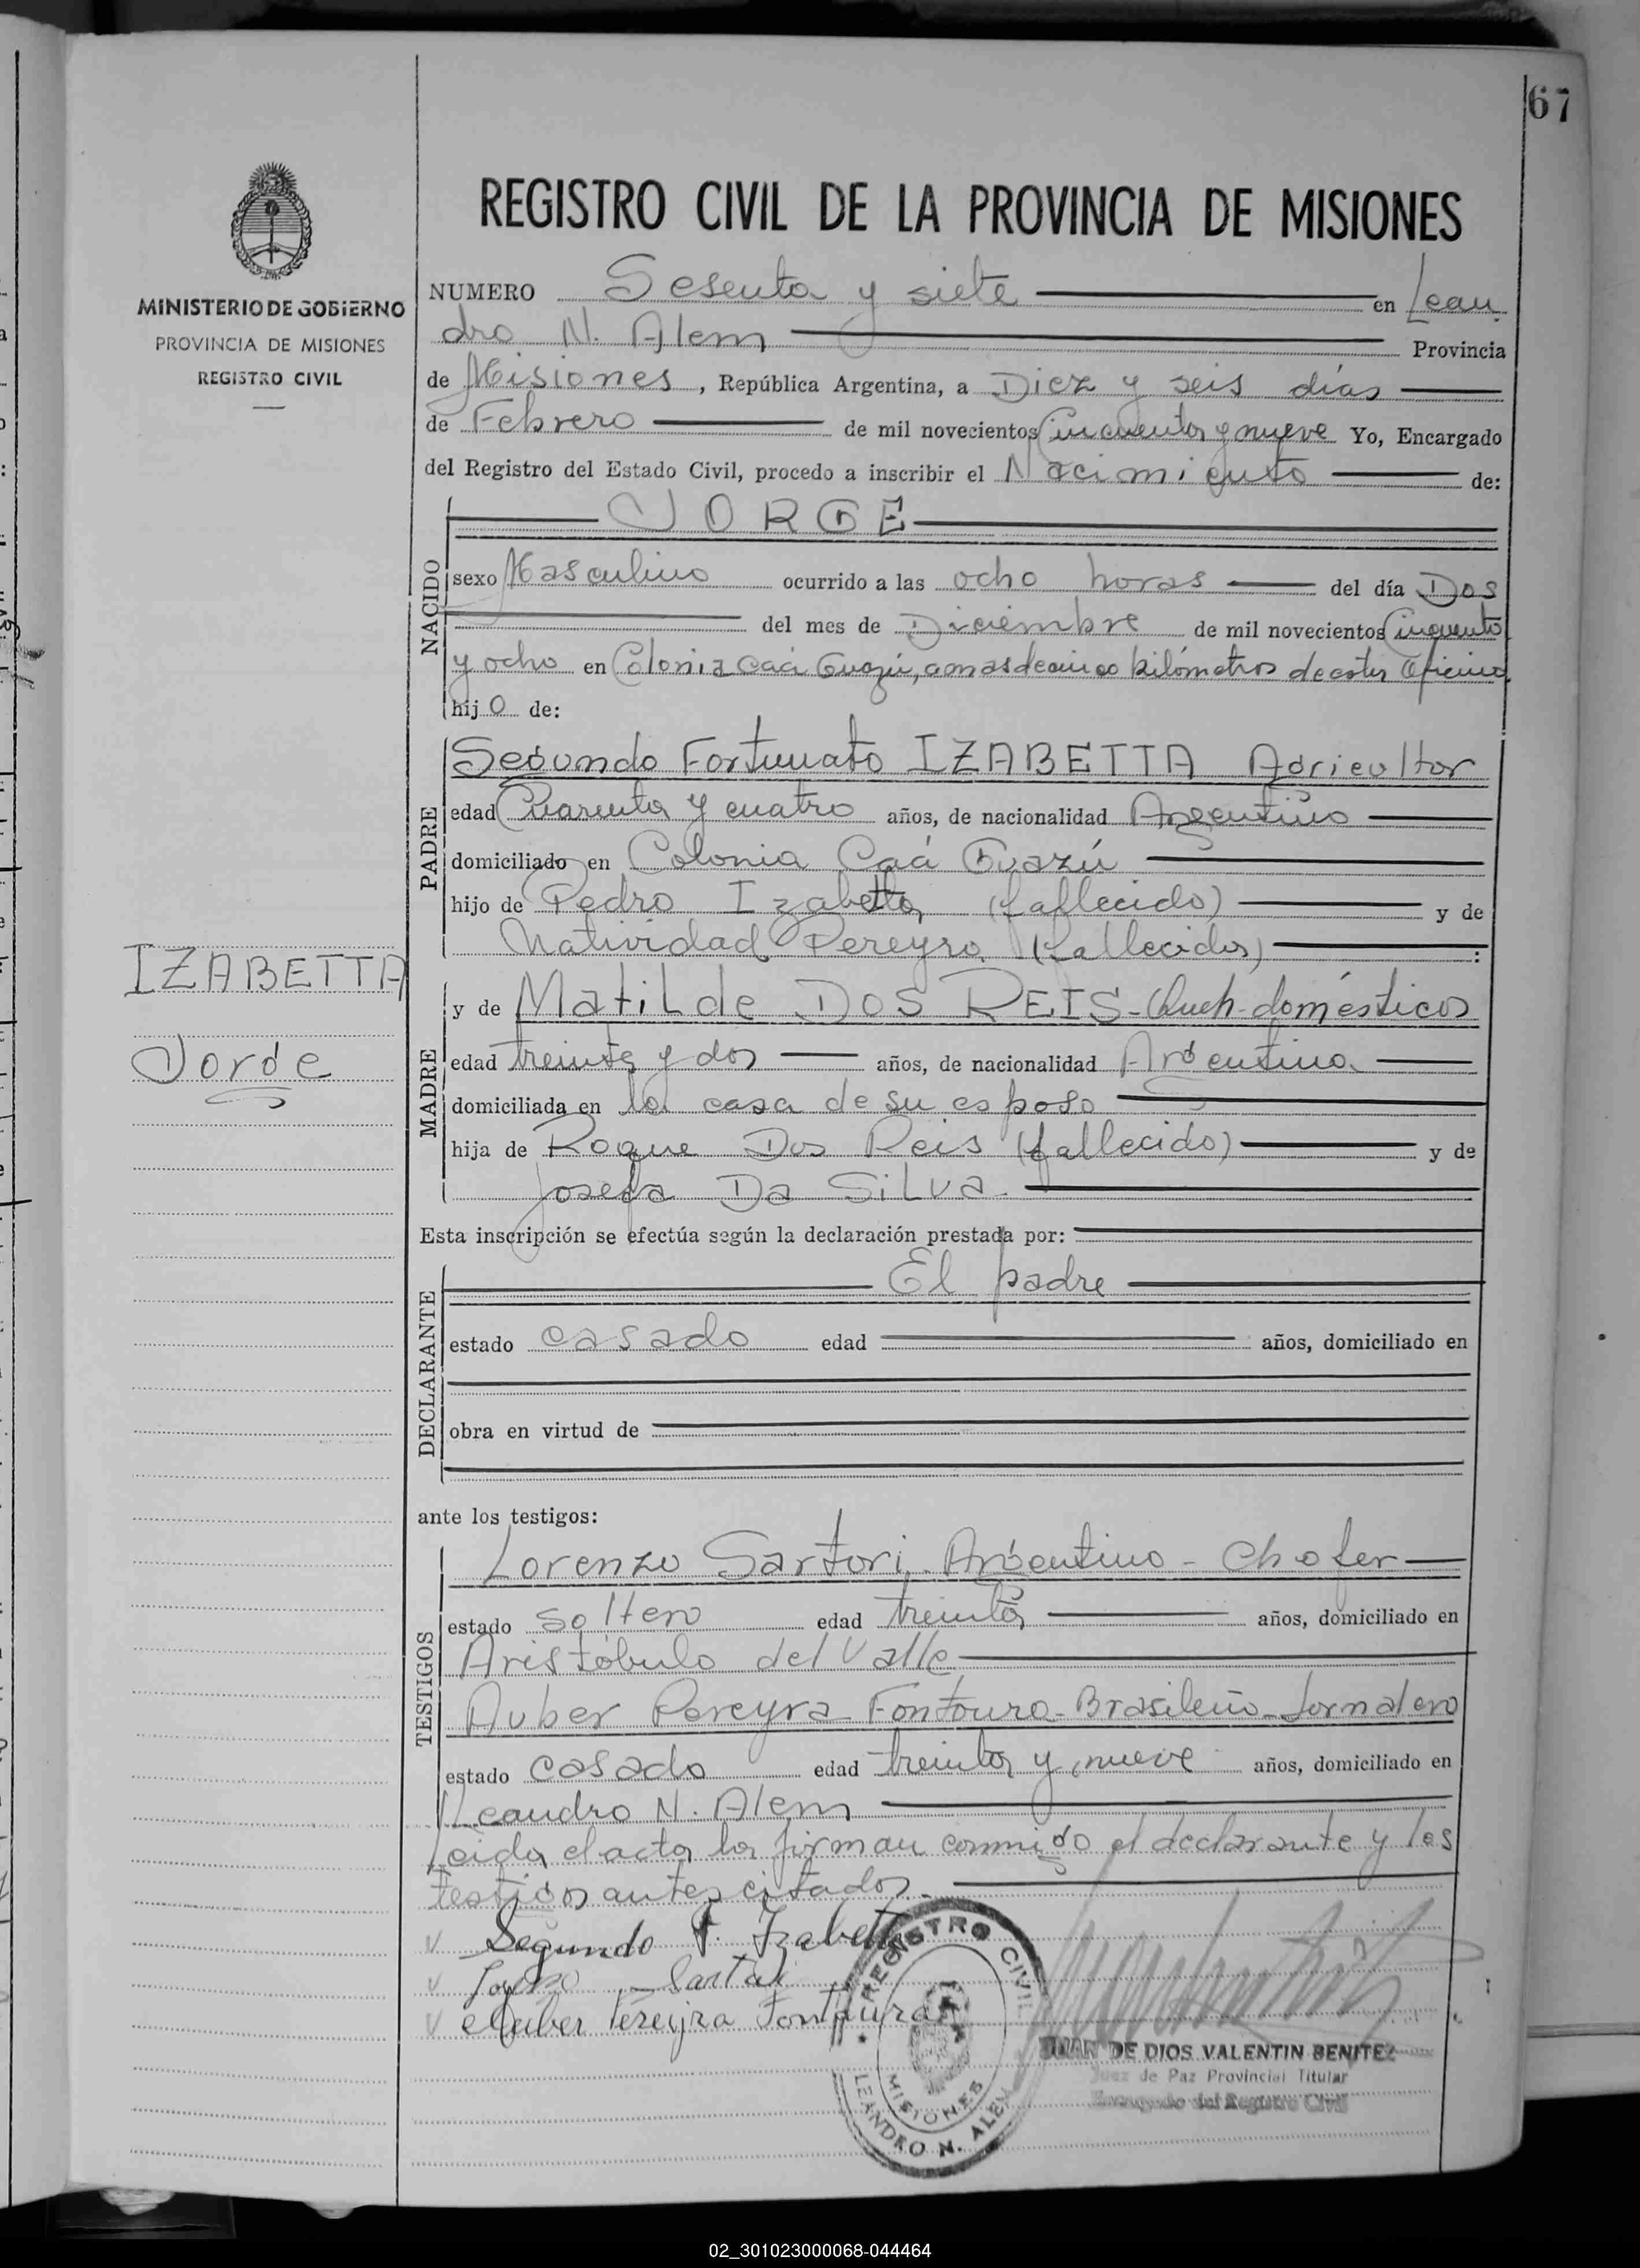 67
REGISTRO CIVIL DE LA PROVINCIA DE MISIONES
MINISTERIO DE GOBIERNO
PROVINCIA DE MISIONES
REGISTRO CIVIL
NUMERO Sesenta y siete en Lean
dro N. Alem Provincia
de Misiones, República Argentina, a Diez y seis días
de Febrero de mil novecientos Cincuenta y nueve Yo, Encargado
del Registro del Estado Civil, procedo a inscribir el Nacimiento de:
JORGE
NACIDO
sexo Masculino ocurrido a las ocho horas del día Dos
del mes de Diciembre de mil novecientos Cincuenta
y ocho en Colonia Caá Guazú, a mas de cinco kilómetros de esta Oficina
hijo de:
PADRE
Segundo Fortunato IZABETTA Agricultor
edad Cuarenta y cuatro años, de nacionalidad Argentino
domiciliado en Colonia Caá Guazú
hijo de Pedro Izabetta (fallecido) y de
Natividad Pereyra (fallecida) :
IZABETTA
Jorge
MADRE
y de Matilde DOS REIS - Queh-domésticos
edad treinta y dos años, de nacionalidad Argentina
domiciliada en la casa de su esposo
hija de Roque Dos Reis (fallecido) y de
Josefa Da Silva.
Esta inscripción se efectúa según la declaración prestada por:
DECLARANTE
El padre
estado casado edad años, domiciliado en
obra en virtud de
ante los testigos:
TESTIGOS
Lorenzo Sartori. Argentino - Chofer
estado soltero edad treinta años, domiciliado en
Aristóbulo del Valle
Auber Pereyra Fontoura - Brasileño - Jornalero
estado casado edad treinta y nueve años, domiciliado en
Leandro N. Alem
Leida el acta la firman conmigo el declarante y los
testigos antes citados.
Segundo F. Izabetta
Lorenzo Sartori
Auber Pereyra Fontoura
REGISTRO CIVIL
MISIONES
LEANDRO N. ALEM
JUAN DE DIOS VALENTIN BENITEZ
Juez de Paz Provincial Titular
Encargado del Registro Civil
02_301023000068-044464